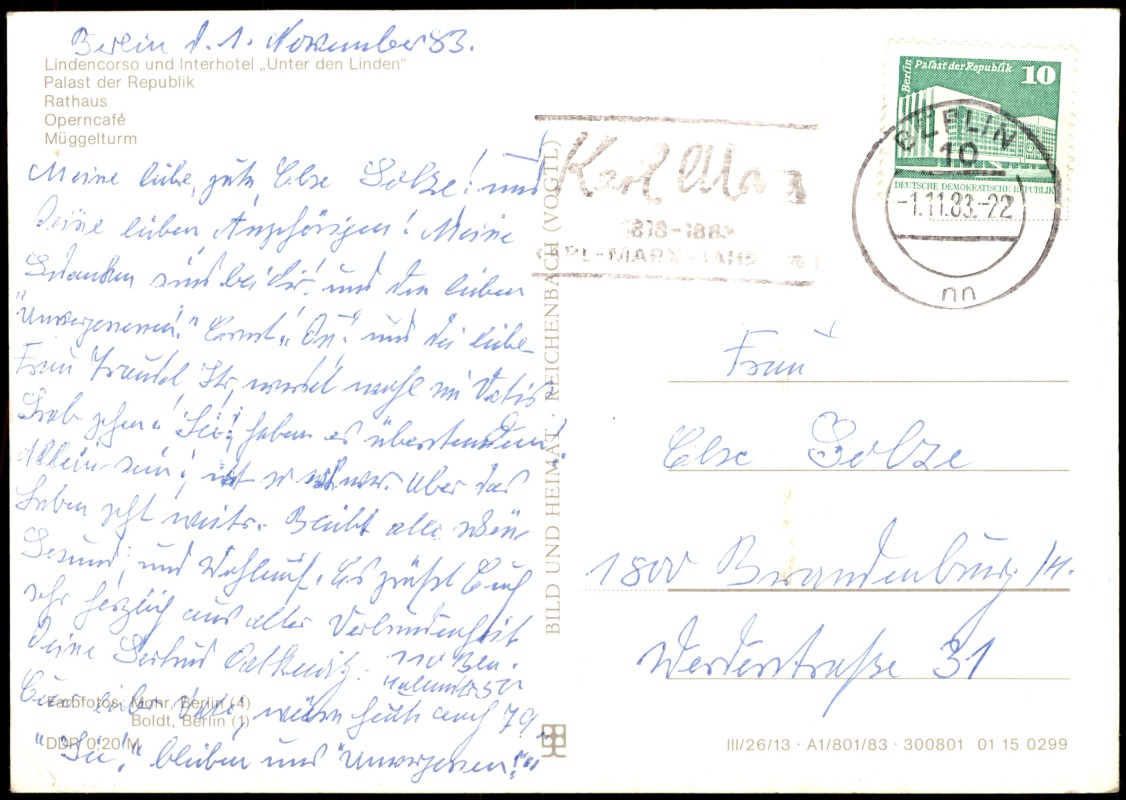 Berlin d. 1. November 83.
Lindencorso und Interhotel „Unter den Linden“
Palast der Republik
Rathaus
Operncafé
Müggelturm
Meine liebe, gute Else Golze! und
Deine lieben Angehörigen! Meine
Gedanken sind bei Dir! und den lieben
"Unvergessenen!" Ernst
und die liebe
Frau Traudel
wohl an Vatis
Grab gehen! "Sie"; haben es überstanden!
Allein sein; ist so schwer. Aber das
Leben geht weiter. Bleibt alle schön
Gesund; und Wohlauf. Es grüßt Euch
sehr herzlich aus alter Verbundenheit
Deine Gertrud
110 Bln.
Euer lieber Vati, wäre heute auch 79
"Sie", bleiben uns "Unvergessen!"
Farbfotos: Mohr, Berlin (4)
Boldt, Berlin (1)
DDR 0,20 M
BILD UND HEIMAT · REICHENBACH (VOGTL)
Karl Marx
1818-1883
KARL-MARX-JAHR
Berlin Palast der Republik 10
DEUTSCHE DEMOKRATISCHE REPUBLIK
BERLIN
10
-1.11.83.-22
nn
Frau
Else Golze
1800 Brandenburg/H.
Werderstraße 31
III/26/13 · A1/801/83 · 300801 01 15 0299